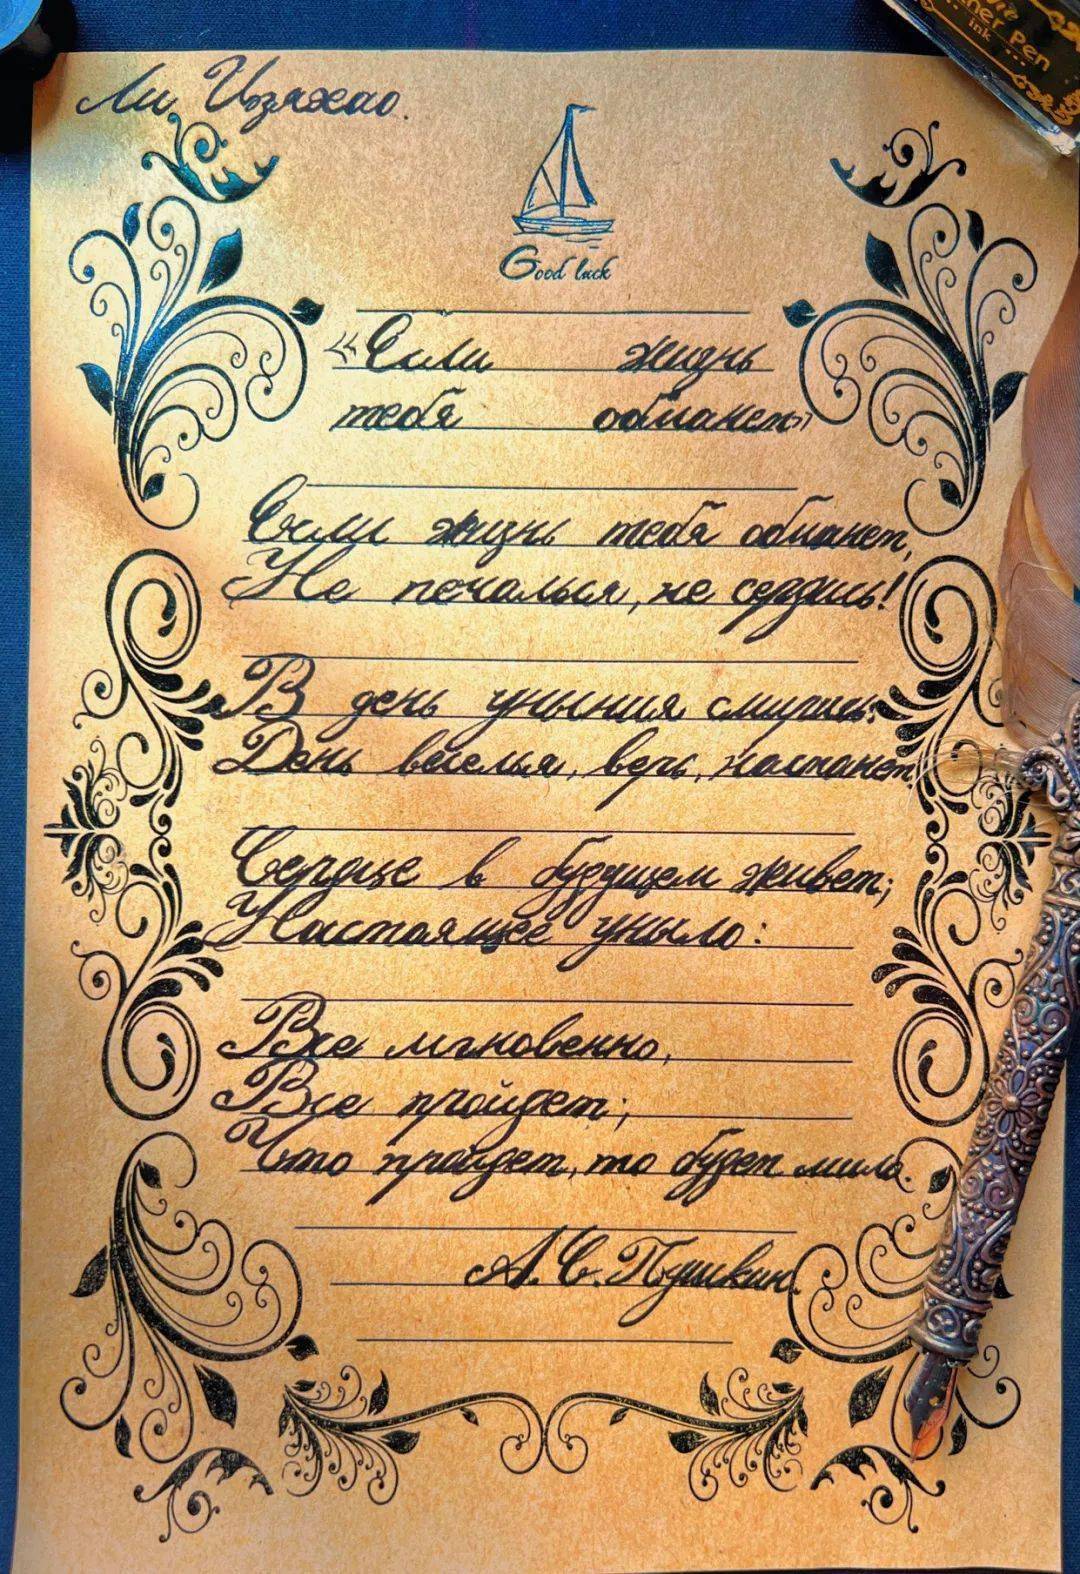 Ли Цзяхао.
Good luck
«Если жизнь
тебя обманет»
Если жизнь тебя обманет,
Не печалься, не сердись!
В день уныния смирись:
День веселья, верь, настанет.
Сердце в будущем живет;
Настоящее уныло:
Все мгновенно,
Все пройдет;
Что пройдет, то будет мило.
А. С. Пушкин.
ner pen
ink